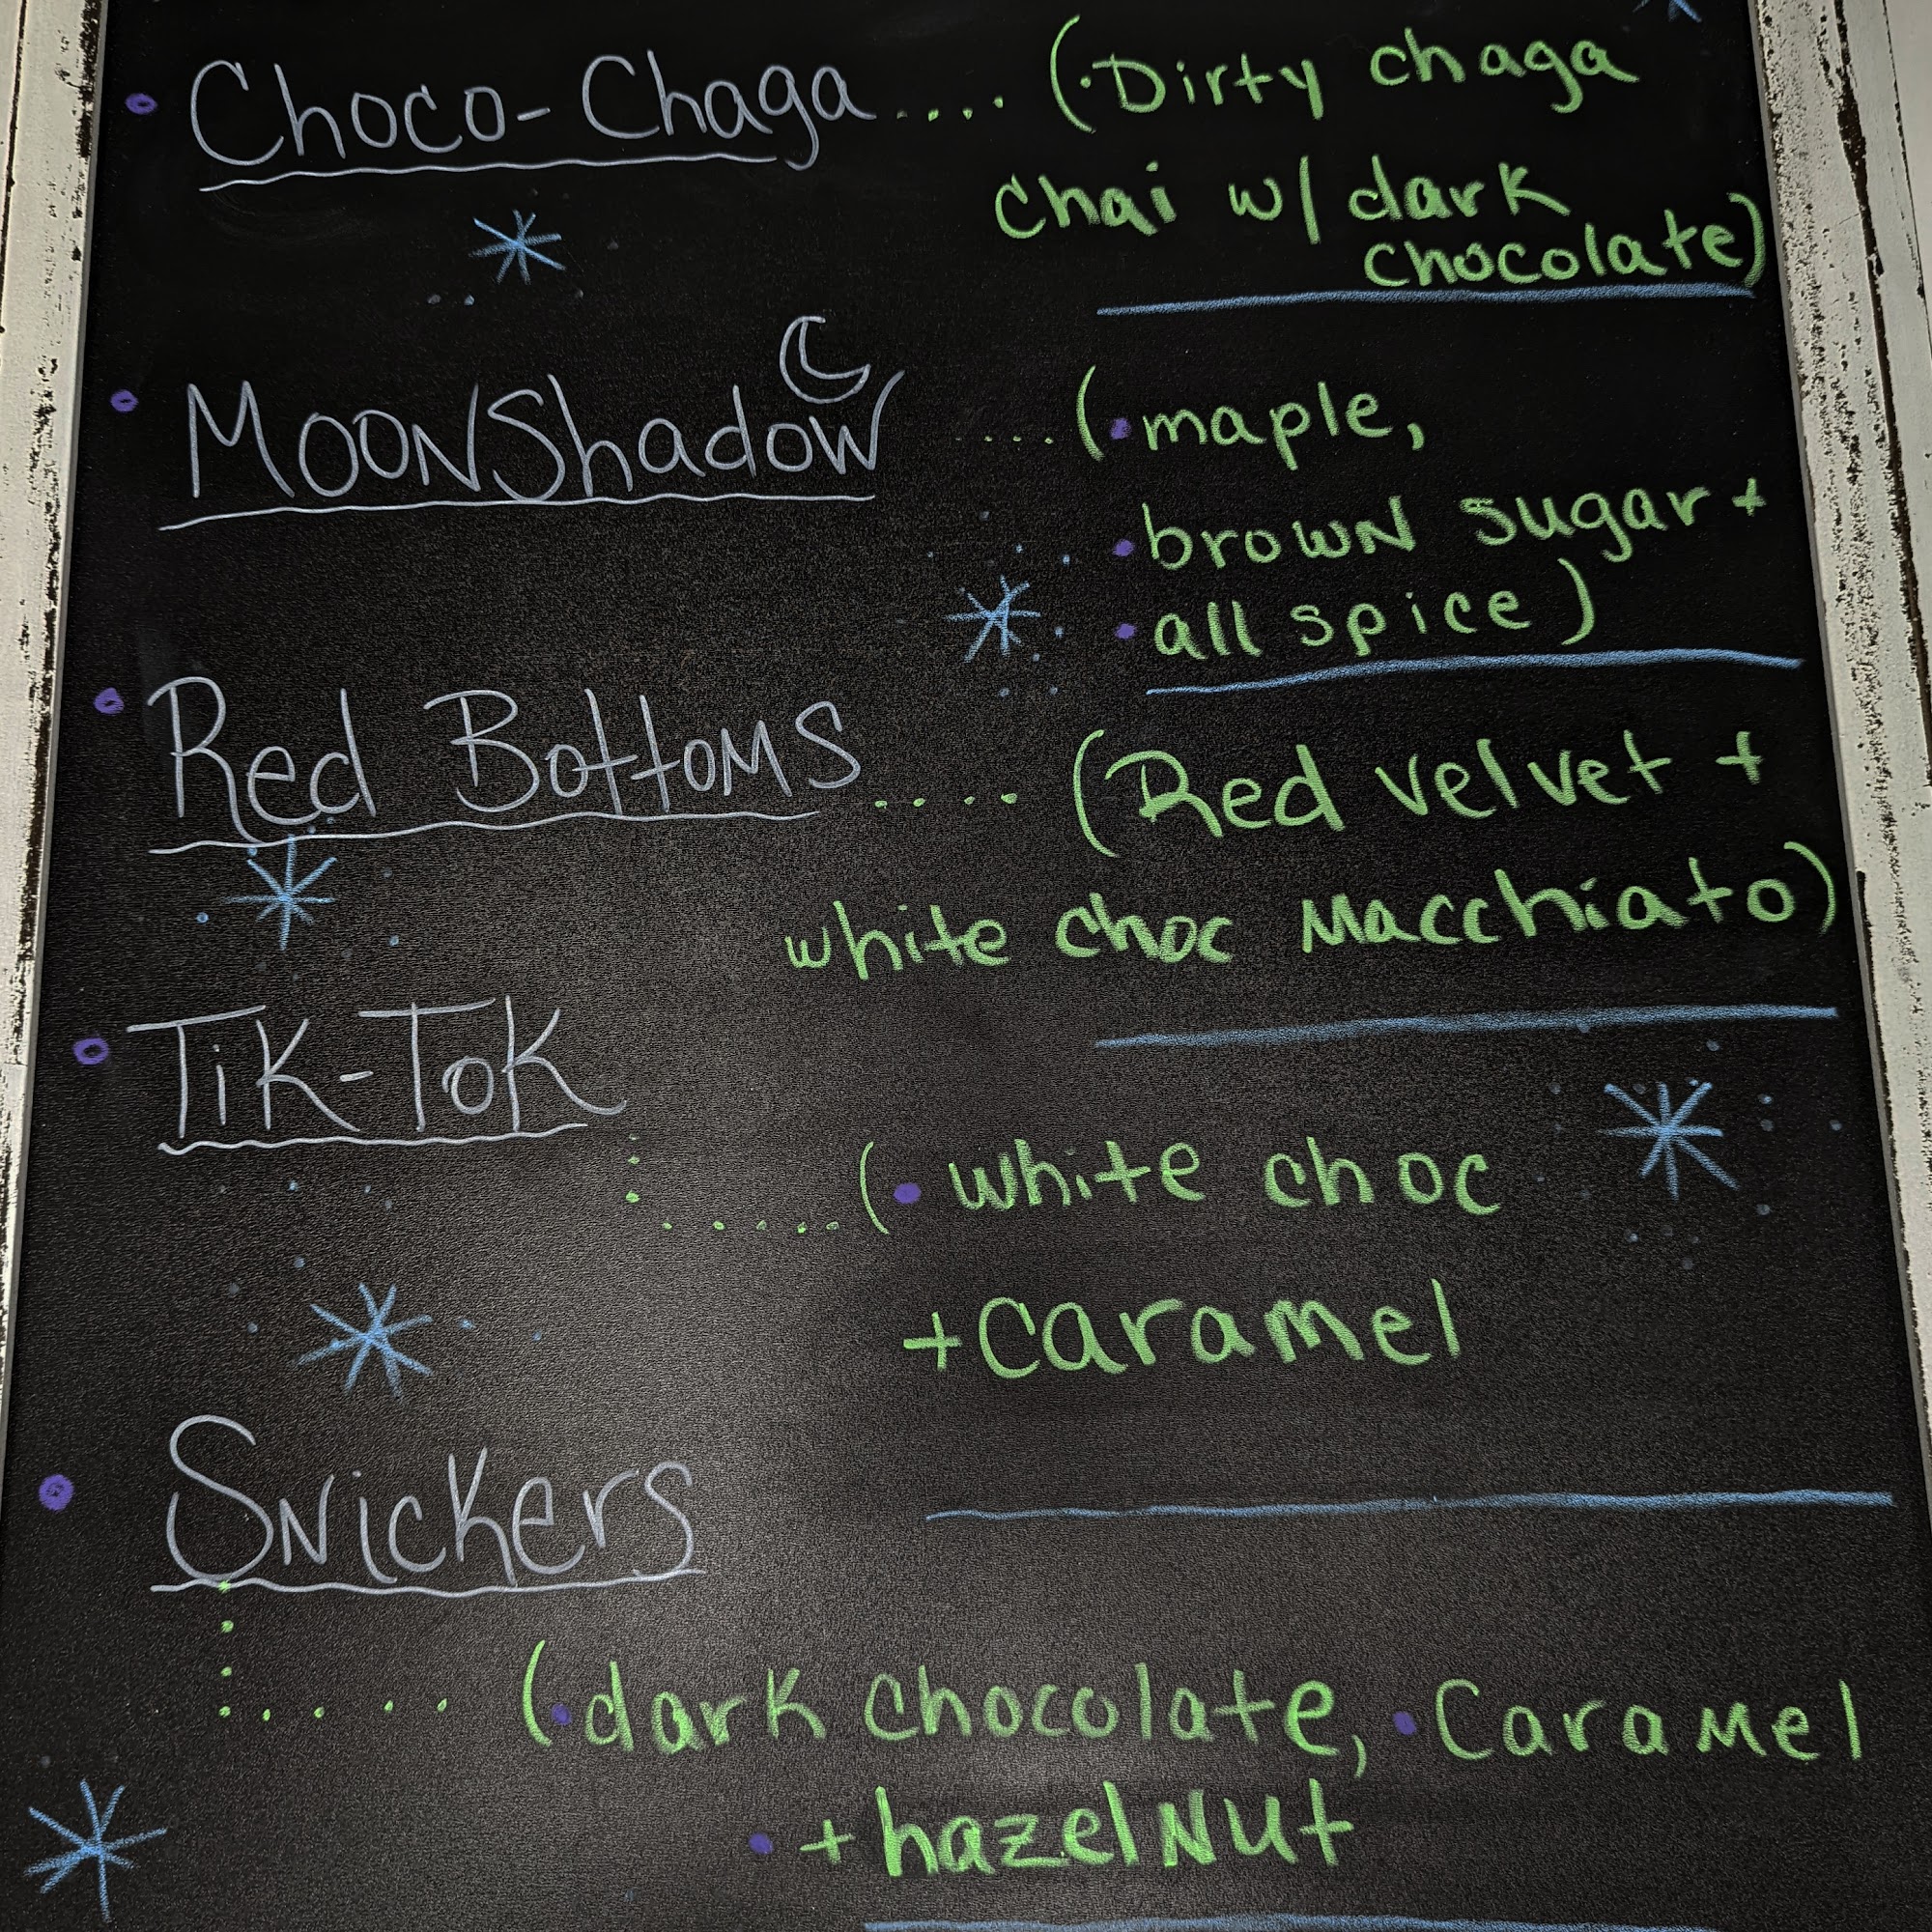 • Choco-Chaga .... (•Dirty chaga
chai w/ dark
chocolate)
• MOONShadow .... (•maple,
•browN sugar +
•all spice)
• Red BottoMS .... (Red velvet +
white choc Macchiato)
• TiK-ToK
...... (• white choc
+ caramel
• SNicKers
..... (•dark chocolate, •CaraMel
• + hazelNut